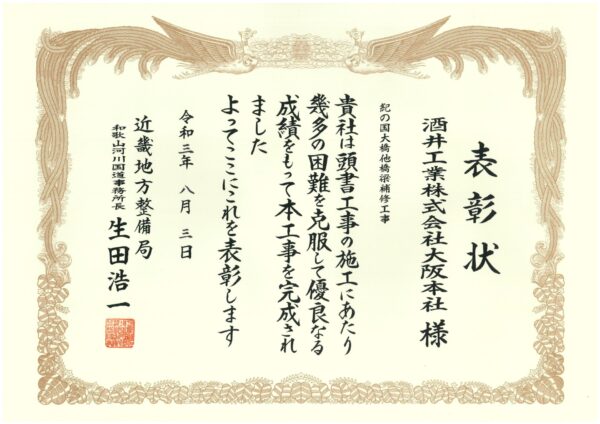 表彰状
酒井工業株式会社大阪本社 様
紀の国大橋他橋梁補修工事
貴社は頭書工事の施工にあたり
幾多の困難を克服して優良なる
成績をもって本工事を完成され
ました
よってここにこれを表彰します
令和三年 八月 三日
近畿地方整備局
和歌山河川国道事務所長 生田浩一